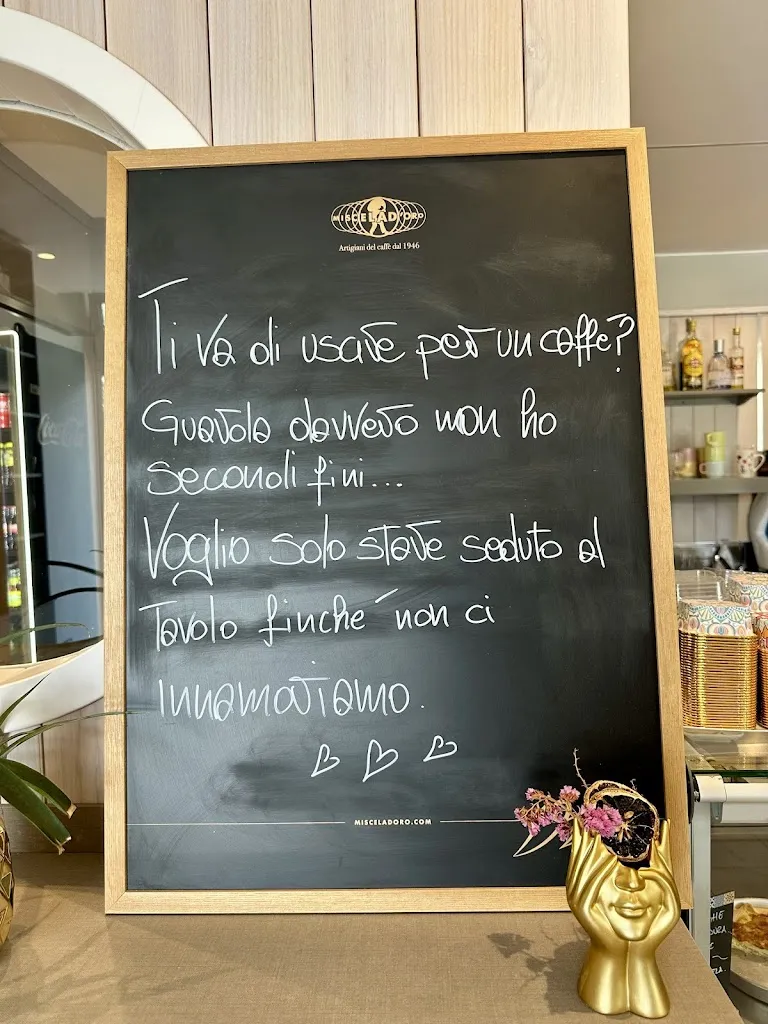 MISCELA D'ORO
Artigiani del caffè dal 1946
Ti va di uscire per un caffe?
Guarda davvero non ho
secondi fini...
Voglio solo stare seduto al
Tavolo finché non ci
innamoriamo.
MISCELADORO.COM
Coca-Cola